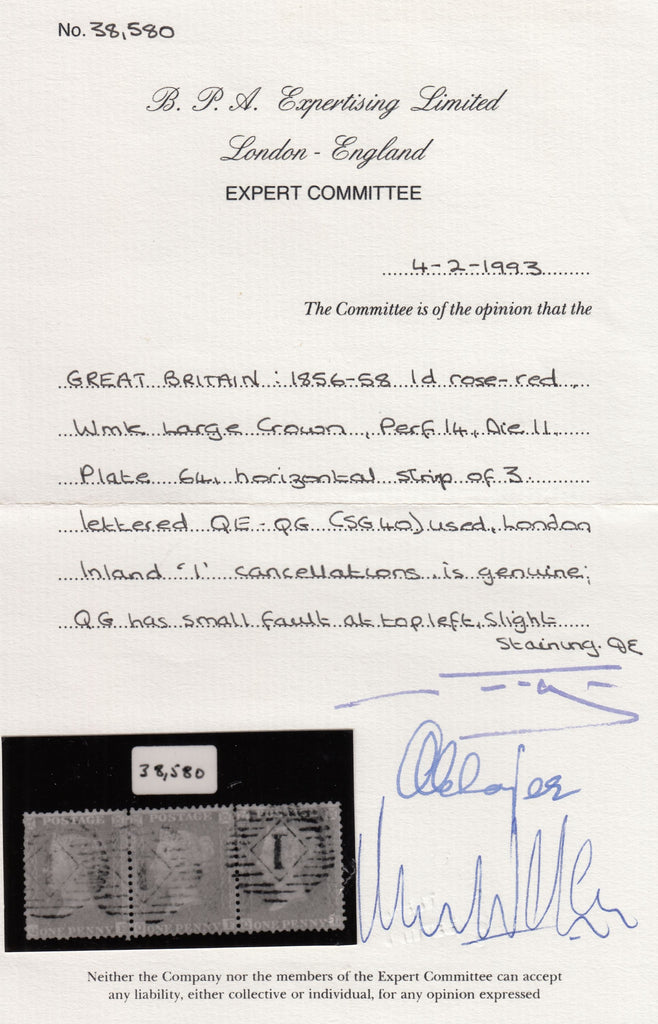 No. 38,580
B. P. A. Expertising Limited
London - England
EXPERT COMMITTEE
4-2-1993
The Committee is of the opinion that the
GREAT BRITAIN : 1856-58 1d rose-red,
Wmk Large Crown, Perf 14, Die 11,
Plate 64, horizontal strip of 3
lettered QE-QG (SG 40) used, London
Inland '1' cancellations, is genuine;
QG has small fault at top left, slight
staining. QE
38,580
POSTAGE POSTAGE
1
ONE PENNY ONE PENNY ONE PENNY
Neither the Company nor the members of the Expert Committee can accept
any liability, either collective or individual, for any opinion expressed